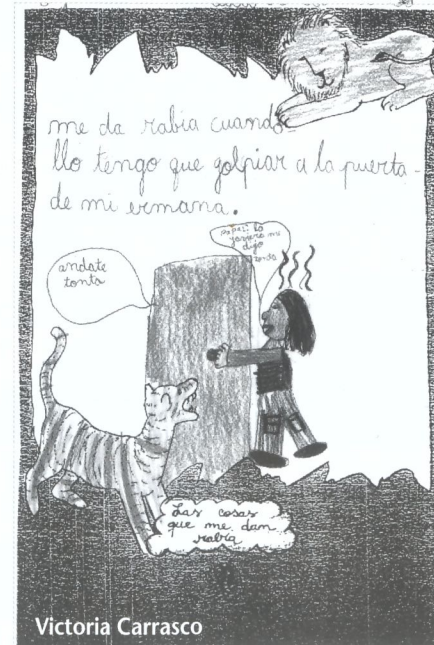 me da rabia cuando
llo tengo que golpiar a la puerta
de mi ermana.
andate
tonta
la
javiera me
dijo
tonta
Las cosas
que me dan
rabia
Victoria Carrasco